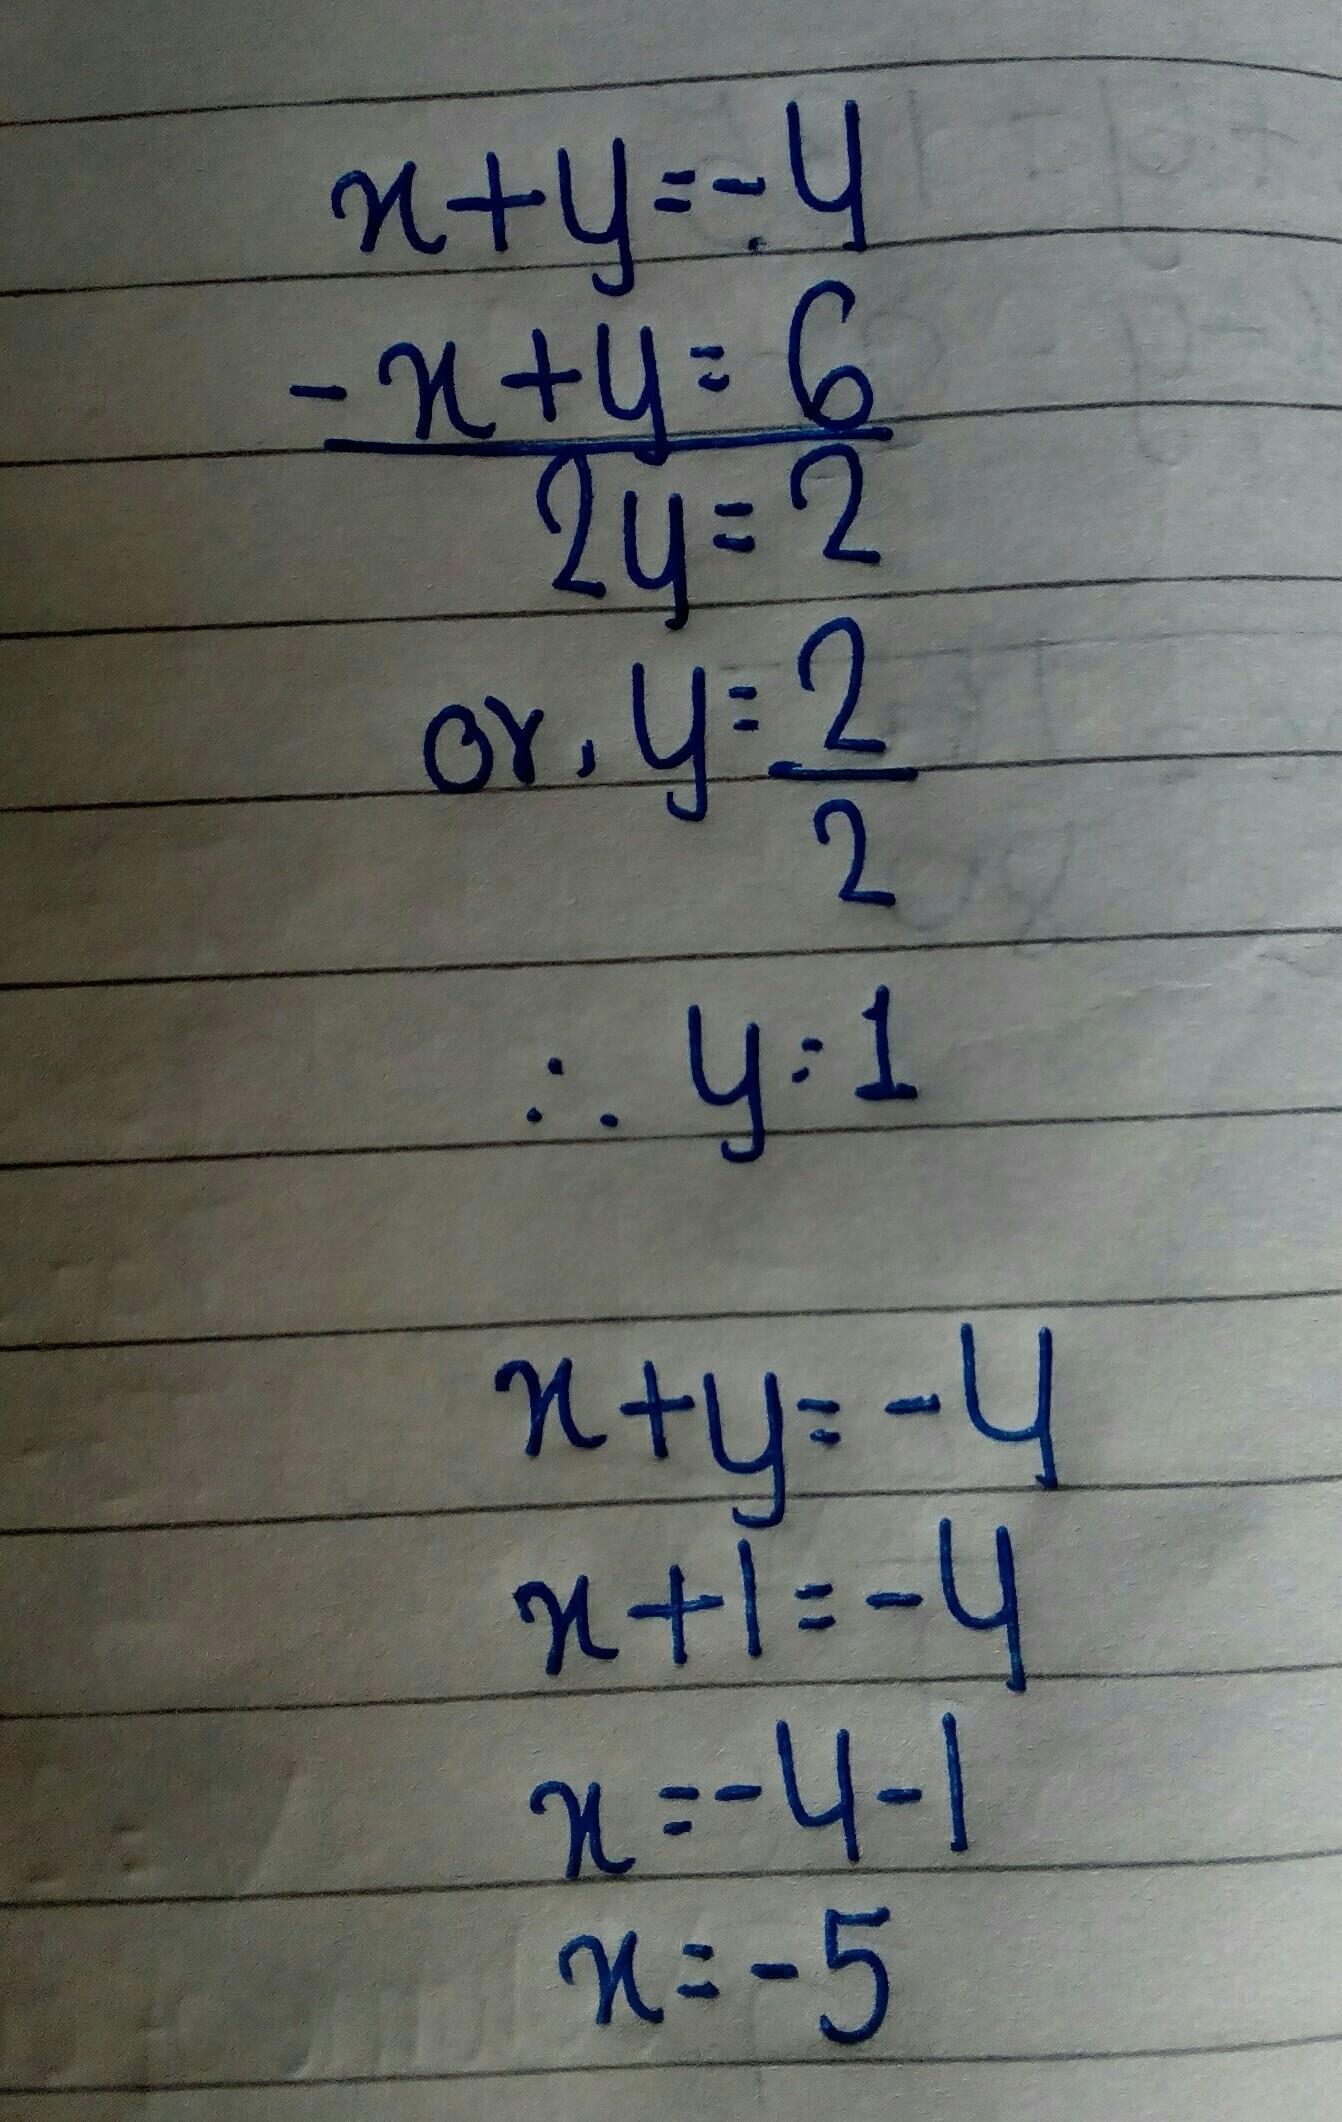 x+y=-4
-x+y=6
2y=2
or, y=2/2
∴ y=1
x+y=-4
x+1=-4
x=-4-1
x=-5